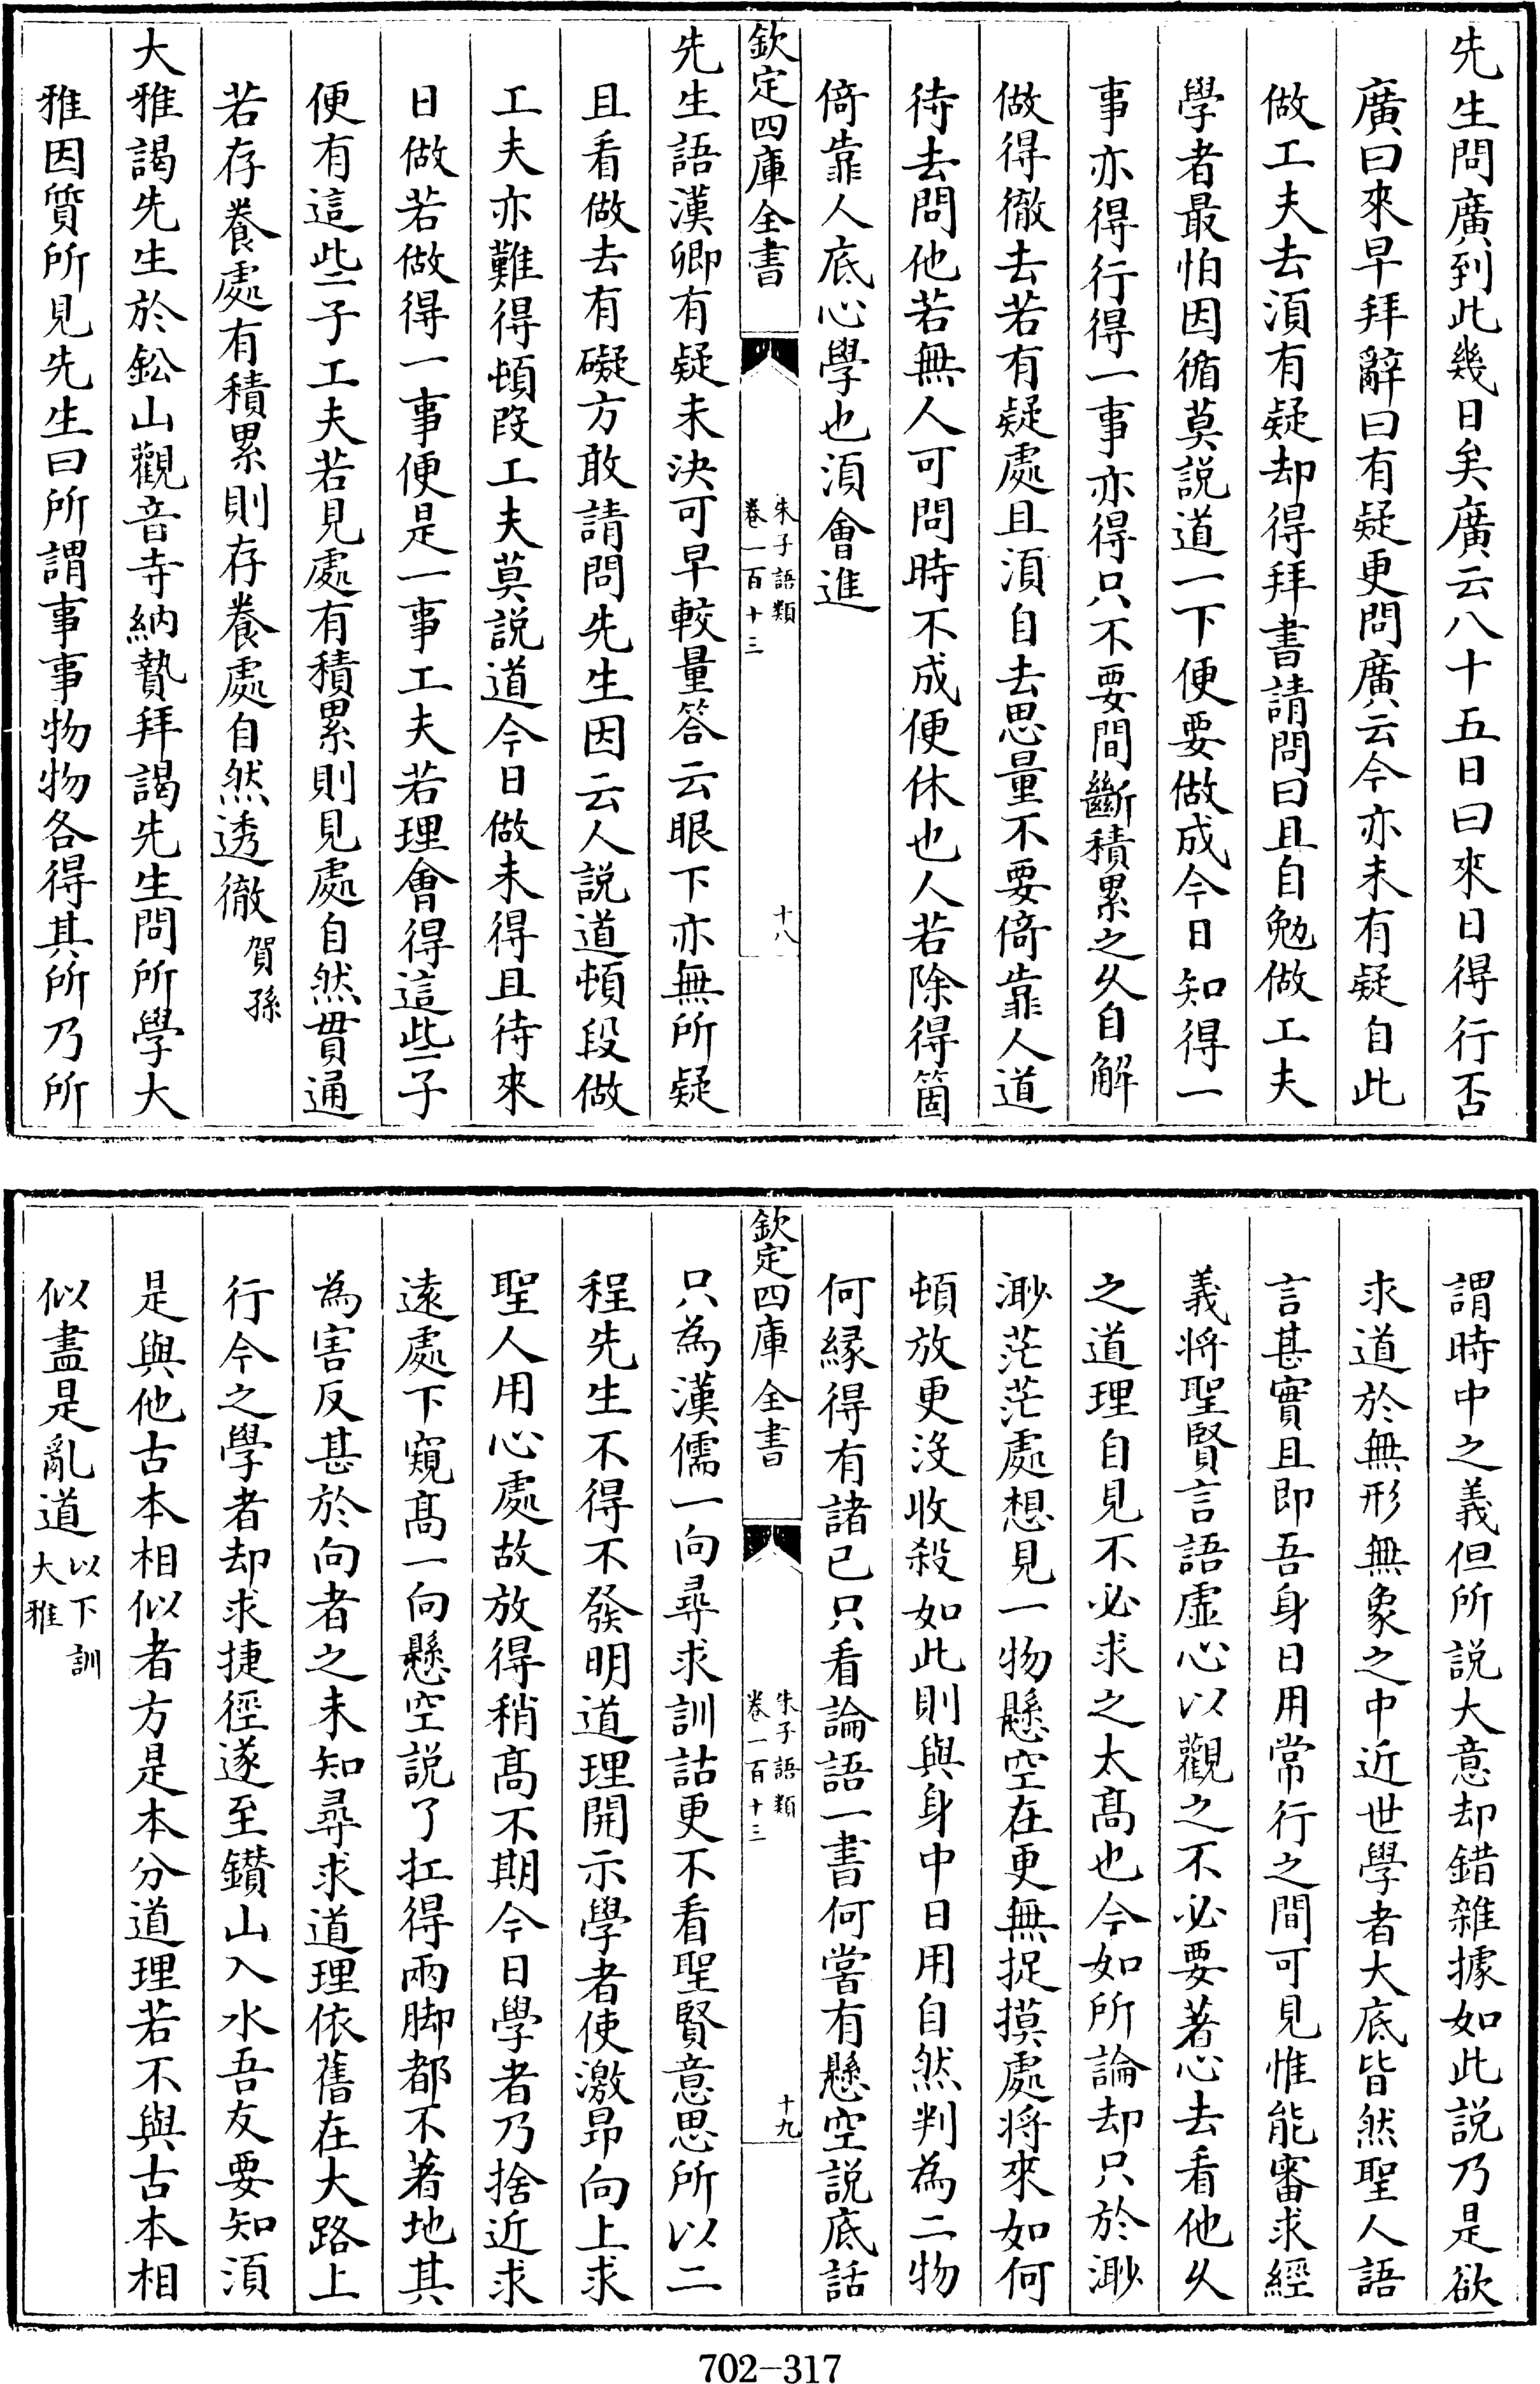 先生問廣到此幾日矣廣云八十五日曰來日得行否
廣曰來早拜辭曰有疑更問廣云今亦未有疑自此
做工夫去須有疑却得拜書請問曰且自勉做工夫
學者最怕因循莫說道一下便要做成今日知得一
事亦得行得一事亦得只不要間斷積累之久自解
做得徹去若有疑處且須自去思量不要倚靠人道
待去問他若無人可問時不成便休也人若除得箇
倚靠人底心學也須會進
欽定四庫全書
朱子語類
卷一百十三
十八
先生語漢卿有疑未決可早較量答云眼下亦無所疑
且看做去有礙方敢請問先生因云人說道頓段做
工夫亦難得頓段工夫莫說道今日做未得且待來
日做若做得一事便是一事工夫若理會得這些子
便有這些子工夫若見處有積累則見處自然貫通
若存養處有積累則存養處自然透徹賀孫
大雅謁先生於鉛山觀音寺納贄拜謁先生問所學大
雅因質所見先生曰所謂事事物物各得其所乃所
謂時中之義但所說大意却錯雜據如此說乃是欲
求道於無形無象之中近世學者大底皆然聖人語
言甚實且即吾身日用常行之間可見惟能審求經
義將聖賢言語虛心以觀之不必要著心去看他久
之道理自見不必求之太髙也今如所論却只於渺
渺茫茫處想見一物懸空在更無捉摸處將來如何
頓放更沒收殺如此則與身中日用自然判為二物
何縁得有諸己只看論語一書何嘗有懸空說底話
欽定四庫全書
朱子語類
卷一百十三
十九
只為漢儒一向尋求訓詁更不看聖賢意思所以二
程先生不得不發明道理開示學者使激昂向上求
聖人用心處故放得稍髙不期今日學者乃捨近求
遠處下窺髙一向懸空說了扛得兩脚都不著地其
為害反甚於向者之未知尋求道理依舊在大路上
行今之學者却求捷徑遂至鑚山入水吾友要知須
是與他古本相似者方是本分道理若不與古本相
似盡是亂道以下訓大雅
702-317